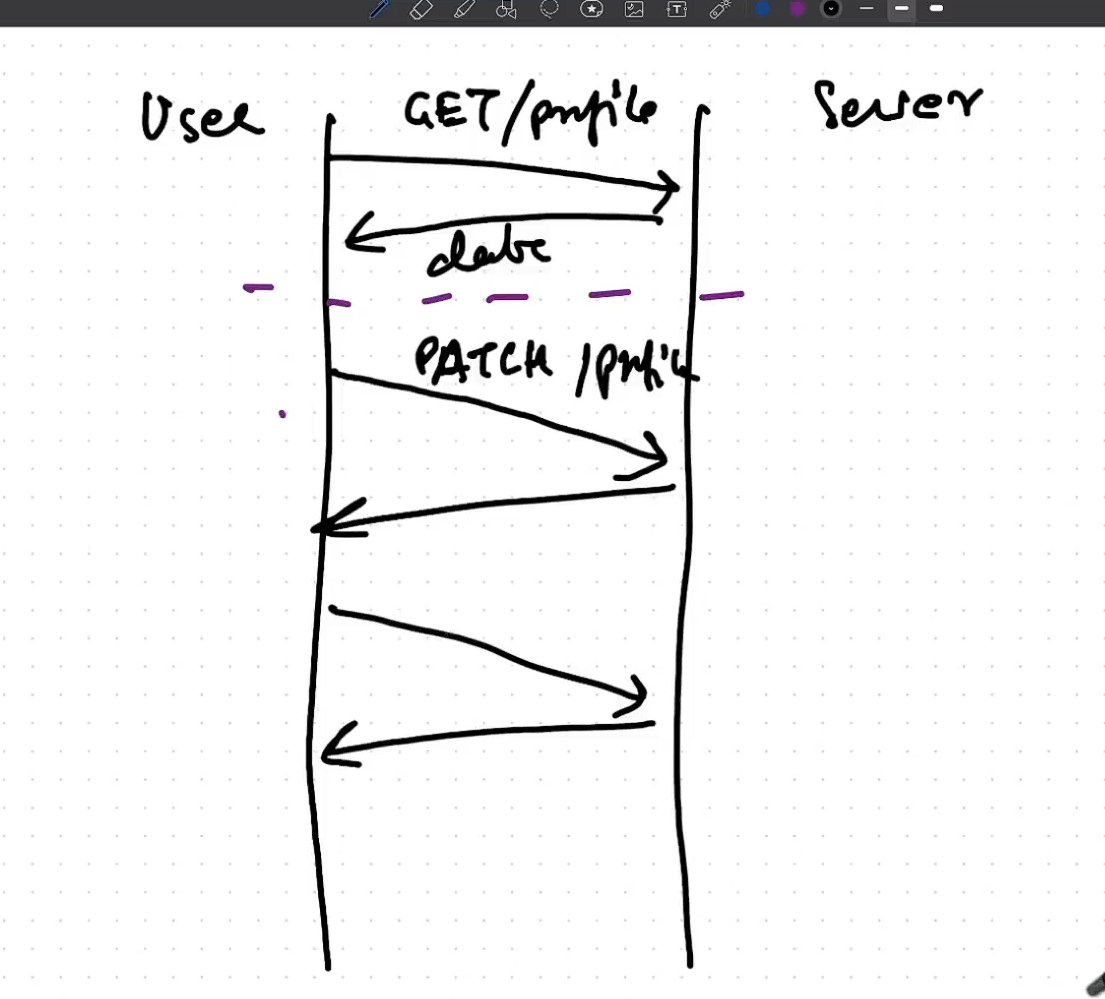 User
GET/profile
Server
data
PATCH /profile